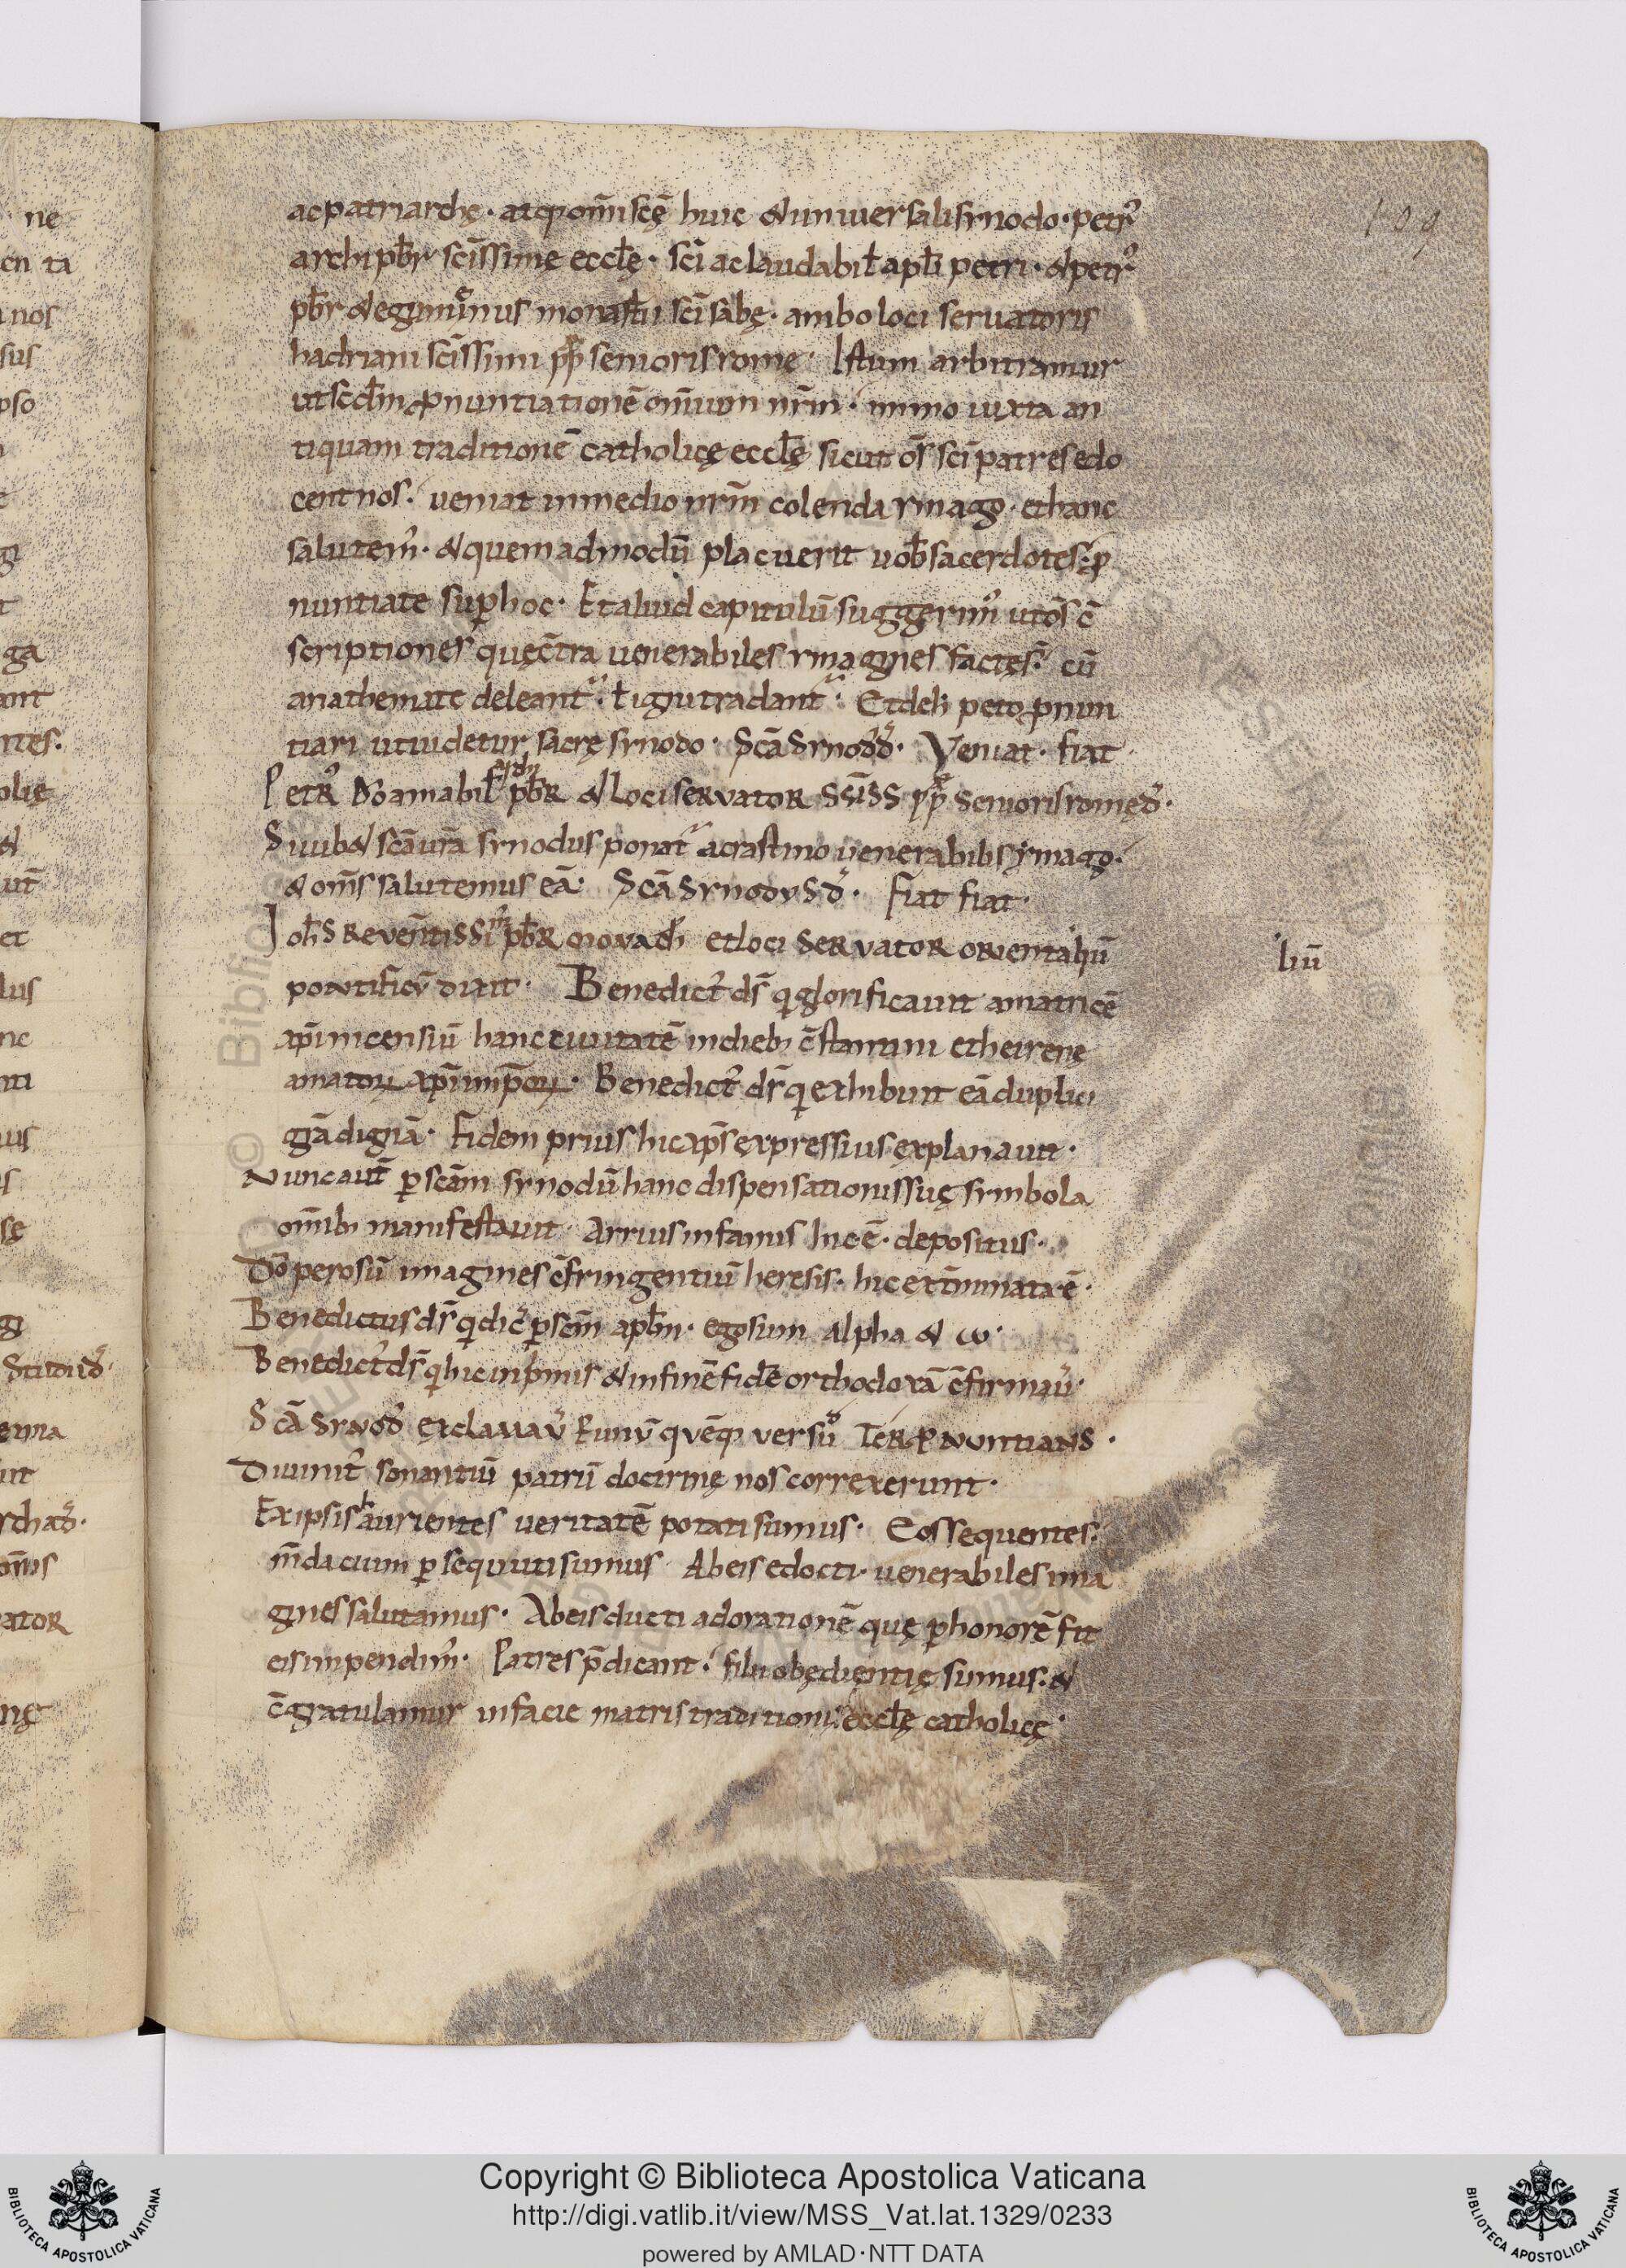 109
ac patriarchę · atq; om̄i scę̄ huic & uniuersali synodo · petr᾿
archipb̄r sc̄issime eccl̄ę · sc̄i ac laudabil̄ apl̄i petri · & petr᾿
pb̄r & egumenus monast̄ii sc̄i sabę · ambo loci seruatoris
hadriani sc̄issimi pp̄ senioris romę · Istum arbitramur
ut scd̄m ꝓnuntiationē om̄ium nr̄m · immo iuxta an
tiquam traditionē catholicę eccl̄ę sicut os̄ sc̄i patres edo
cent nos · ueniat in medio nr̄m colenda ymago · et hanc
salutem᾿ · & quemadmodū placuerit uob̄ sacerdotes · ꝓ
nuntiate sup̱ hoc · Et aliud capitulū suggerim᾿ ut os̄ c̄
scriptiones quę c̄tra uenerabiles ymagines factęs · cū
anathemate deleant᾿ · ł igni tradant᾿ · Et de h peto ꝓnun
tiari ut uidetur sacrę synodo · Scā Synod᾿ d᾿ · Veniat · fiat ·
Petr᾿ dō amabil̄ pb̄r & loci seruator sciss pp̄ senioris romę d᾿ ·
Si iub& scā ur̄a synodus ponat᾿ a crastino uenerabilis ymago ·
& om̄s salutemus eā · Scā Synodus d᾿ · fiat fiat ·
Joh̄s reuen̄tissim᾿ pb̄r monach᾿ et loci seruator orientaliū
liū
pontificū dixit · Benedict᾿ ds̄ q glorificauit amatricē
xp̄i nicensiū hanc ciuitatē in dieb; c̄stantini et heirenę
amatoꝝ xp̄i imp̄oꝝ · Benedict᾿ ds̄ q exhibuit eā duplici
gr̄a dignā · Fidem prius hic xp̄s expressius explanauit ·
Nunc aut̄ p̱ scām synodū hanc dispensationis suę symbola
om̄ib; manifestauit · Arrius infamis hic ē · depositus ·
Dō perosū imagines c̄fringentiū heresis · hic ext̄minata ē ·
Benedictus ds̄ q dic᾿ p̱ scm̄ apl̄m · ego sum alpha & ω ·
Benedict᾿ ds̄ q hic in p᾿mis & in fine fidē orthodoxā c̄firmau᾿ ·
Scā Synod᾿ exclamau᾿ & unū quēq; versū ter ꝓnuntians ·
Diuinit᾿ sonantiū patrū doctrinę nos correxerunt ·
Ex ipsis haurientes ueritatē potati sumus · Eos sequentes ·
m̄dacium p̱sequuti sumus · Ab eis edocti · uenerabiles ima
gines salutamus · Ab eis ducti adorationē quę p̱ honorē fit
eis impendim᾿ · Patres p̄dicant · filii obędientię sumus · &
c̄gratulamur in facie matris traditioni eccl̄ę catholicę ·
Copyright © Biblioteca Apostolica Vaticana
http://digi.vatlib.it/view/MSS_Vat.lat.1329/0233
powered by AMLAD·NTT DATA
BIBLIOTECA APOSTOLICA VATICANA
BIBLIOTECA APOSTOLICA VATICANA